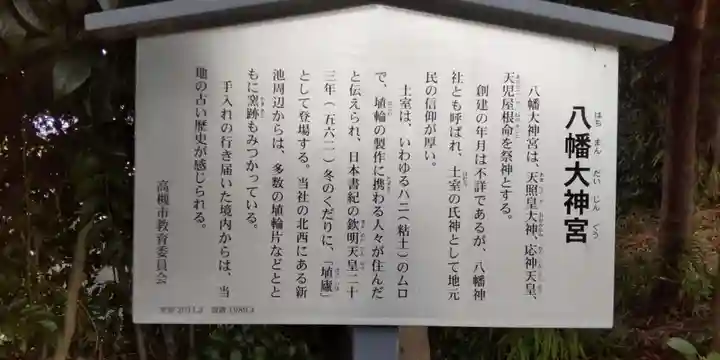 八幡大神宮
はち まん だい じん ぐう
八幡大神宮は、天照皇大神、応神天皇、
天児屋根命を祭神とする。
創建の年月は不詳であるが、八幡神
社とも呼ばれ、土室の氏神として地元
民の信仰が厚い。
土室は、いわゆるハニ(粘土)のムロ
で、埴輪の製作に携わる人々が住んだ
と伝えられ、日本書紀の欽明天皇二十
三年(五六二)冬のくだりに、「埴廬」
として登場する。当社の北西にある新
池周辺からは、多数の埴輪片などとと
もに窯跡もみつかっている。
手入れの行き届いた境内からは、当
地の古い歴史が感じられる。
高槻市教育委員会